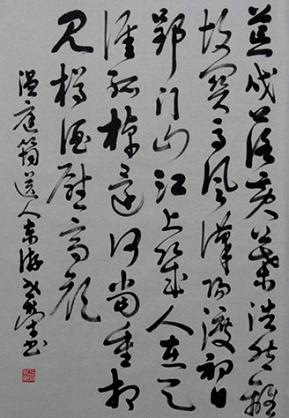 荒戍落黄葉浩然離
故關高風漢陽渡初日
郢门山江上幾人在天
涯孤棹還何當重相
見樽酒慰离顏
温庭筠送人東游 书